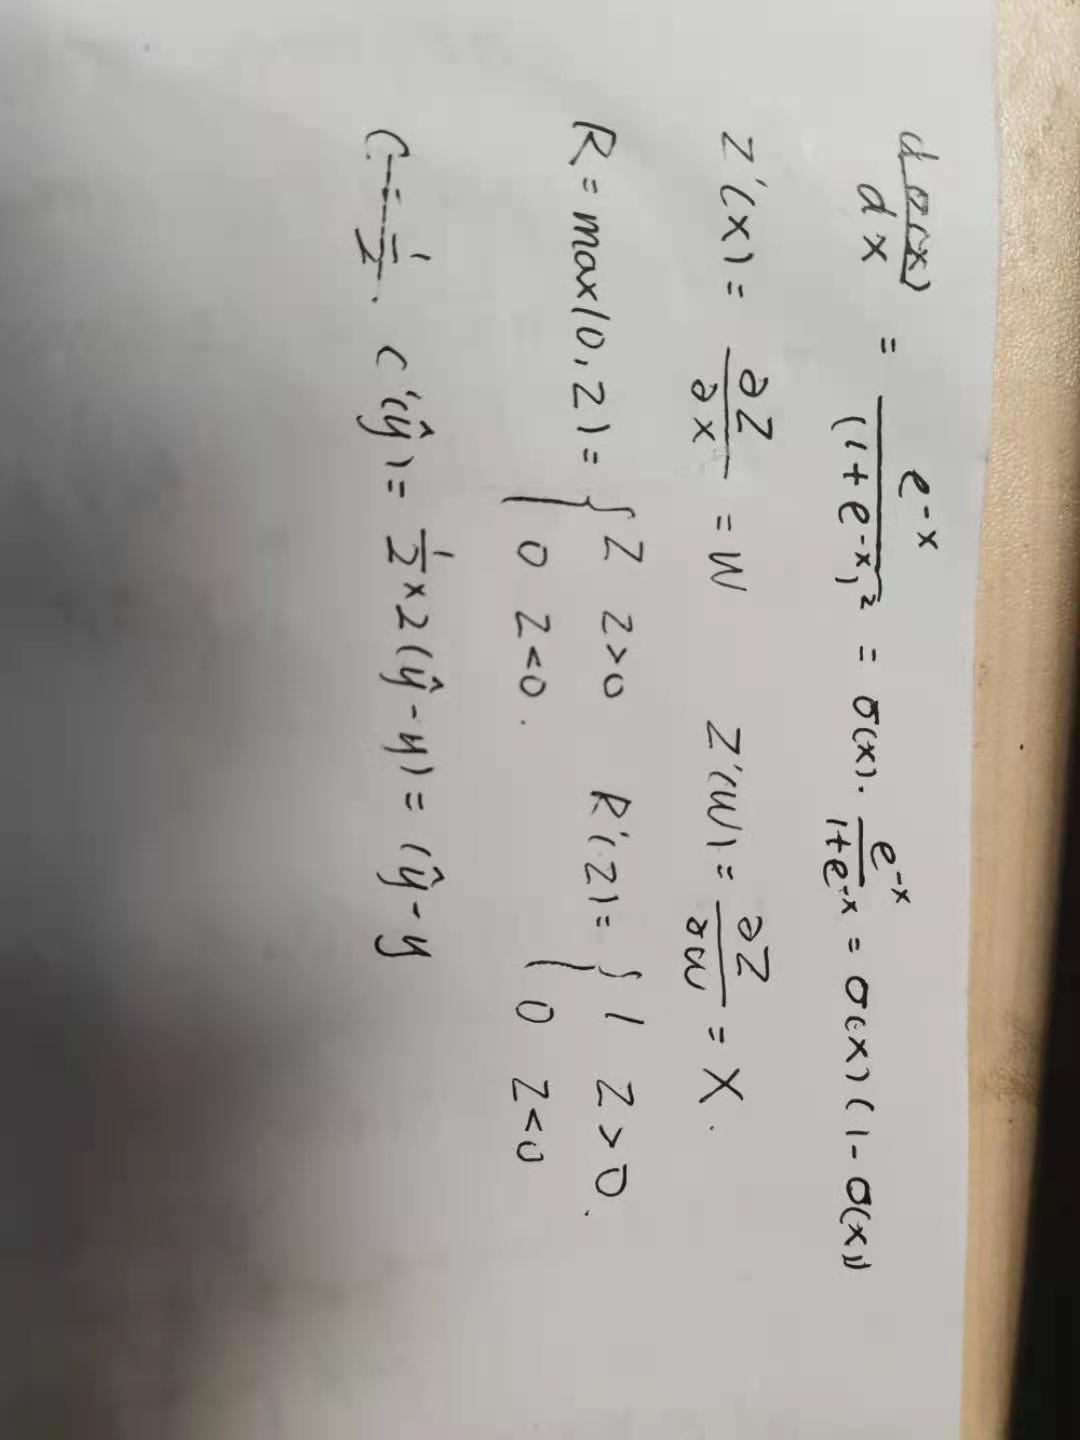 dσ(x)/dx = e^-x/(1+e^-x)² = σ(x)·e^-x/1+e^-x = σ(x)(1-σ(x))
Z'(X) = ∂Z/∂X = W Z'(W) = ∂Z/∂W = X.
R = max(0, Z) = { Z Z>0 R'(Z) = { 1 Z>0.
0 Z<0. 0 Z<0
C'(ŷ) = 1/2×2(ŷ-y) = (ŷ-y